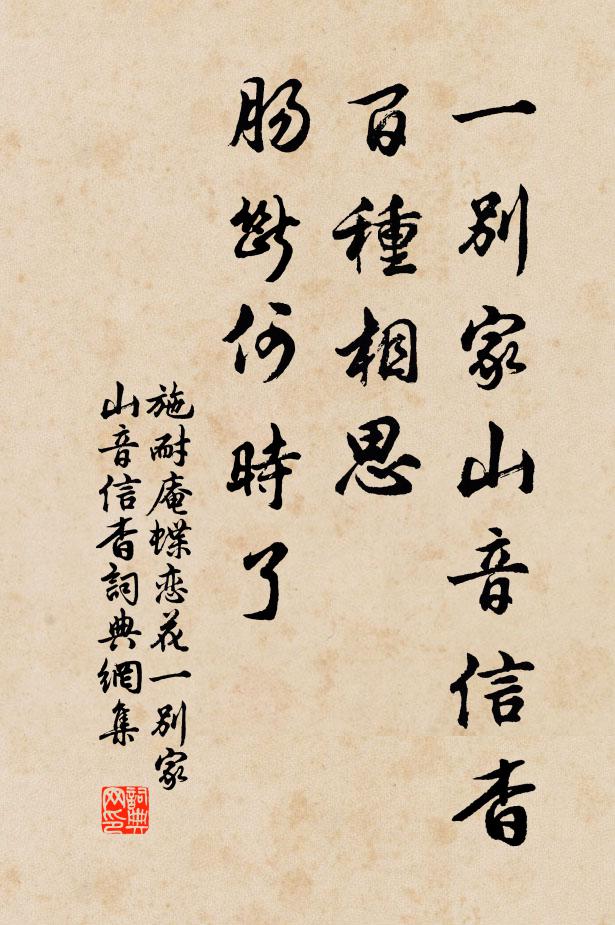 一别家山音信杳
百種相思
肠断何時了
施耐庵蝶恋花一别家
山音信杳詞典網集
詞典
网印